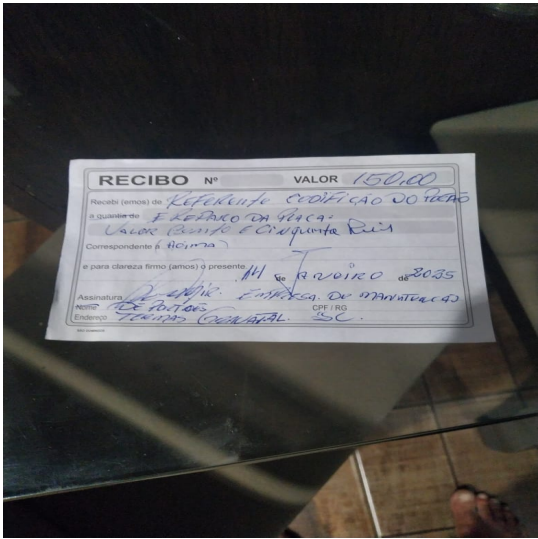 RECIBO Nº VALOR 150,00
Recebi (emos) de Referente codificação do Portão
a quantia de E REPARO DA PLACA.
Valor Cento e Cinquenta Reis
Correspondente a (Acima)
e para clareza firmo (amos) o presente
14 de Janeiro de 2025
Assinatura Empresa de manutenção
Nome DE PORTÕES CPF / RG
Endereço TERMAS SC.